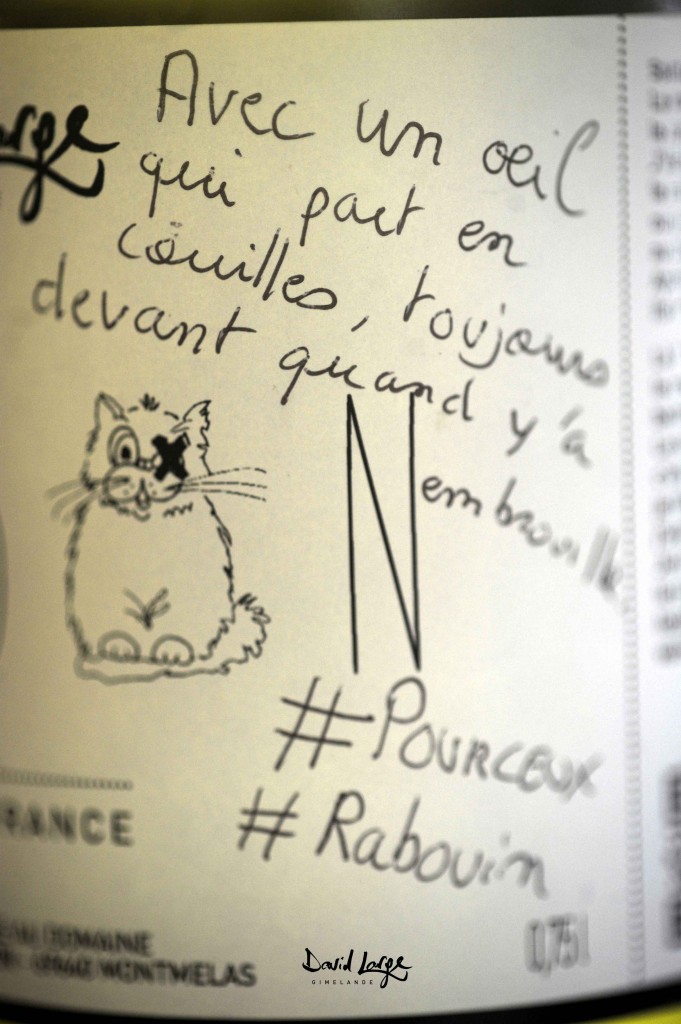 Avec un oeil
qui part en
couilles, toujours
devant quand y'a
embrouille
N
#Pourceux
#Rabouin
RANCE
DOMAINE
MONTMELAS
0,75 l
David Large
GIMELANDE